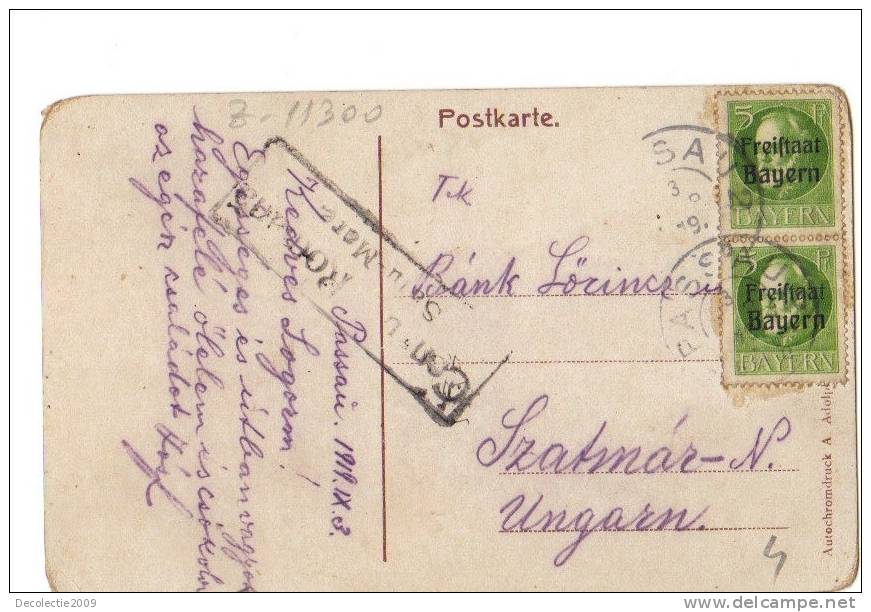 Z-11300
Postkarte.
Passau. 1919. IX. 3.
Kedves Sógorm!
Egésséges és útban vagyok
hazafelé ölelem és csókolom
az egész családot
T.k
Bánk Lőrincz
Szatmár-N.
Ungarn.
4
5 Pf
Freistaat
Bayern
BAYERN
5 Pf
Freistaat
Bayern
BAYERN
PASSAU
Satu-Mare
Autochromdruck A. Adolph
Decolectie2009
www.delcampe.net